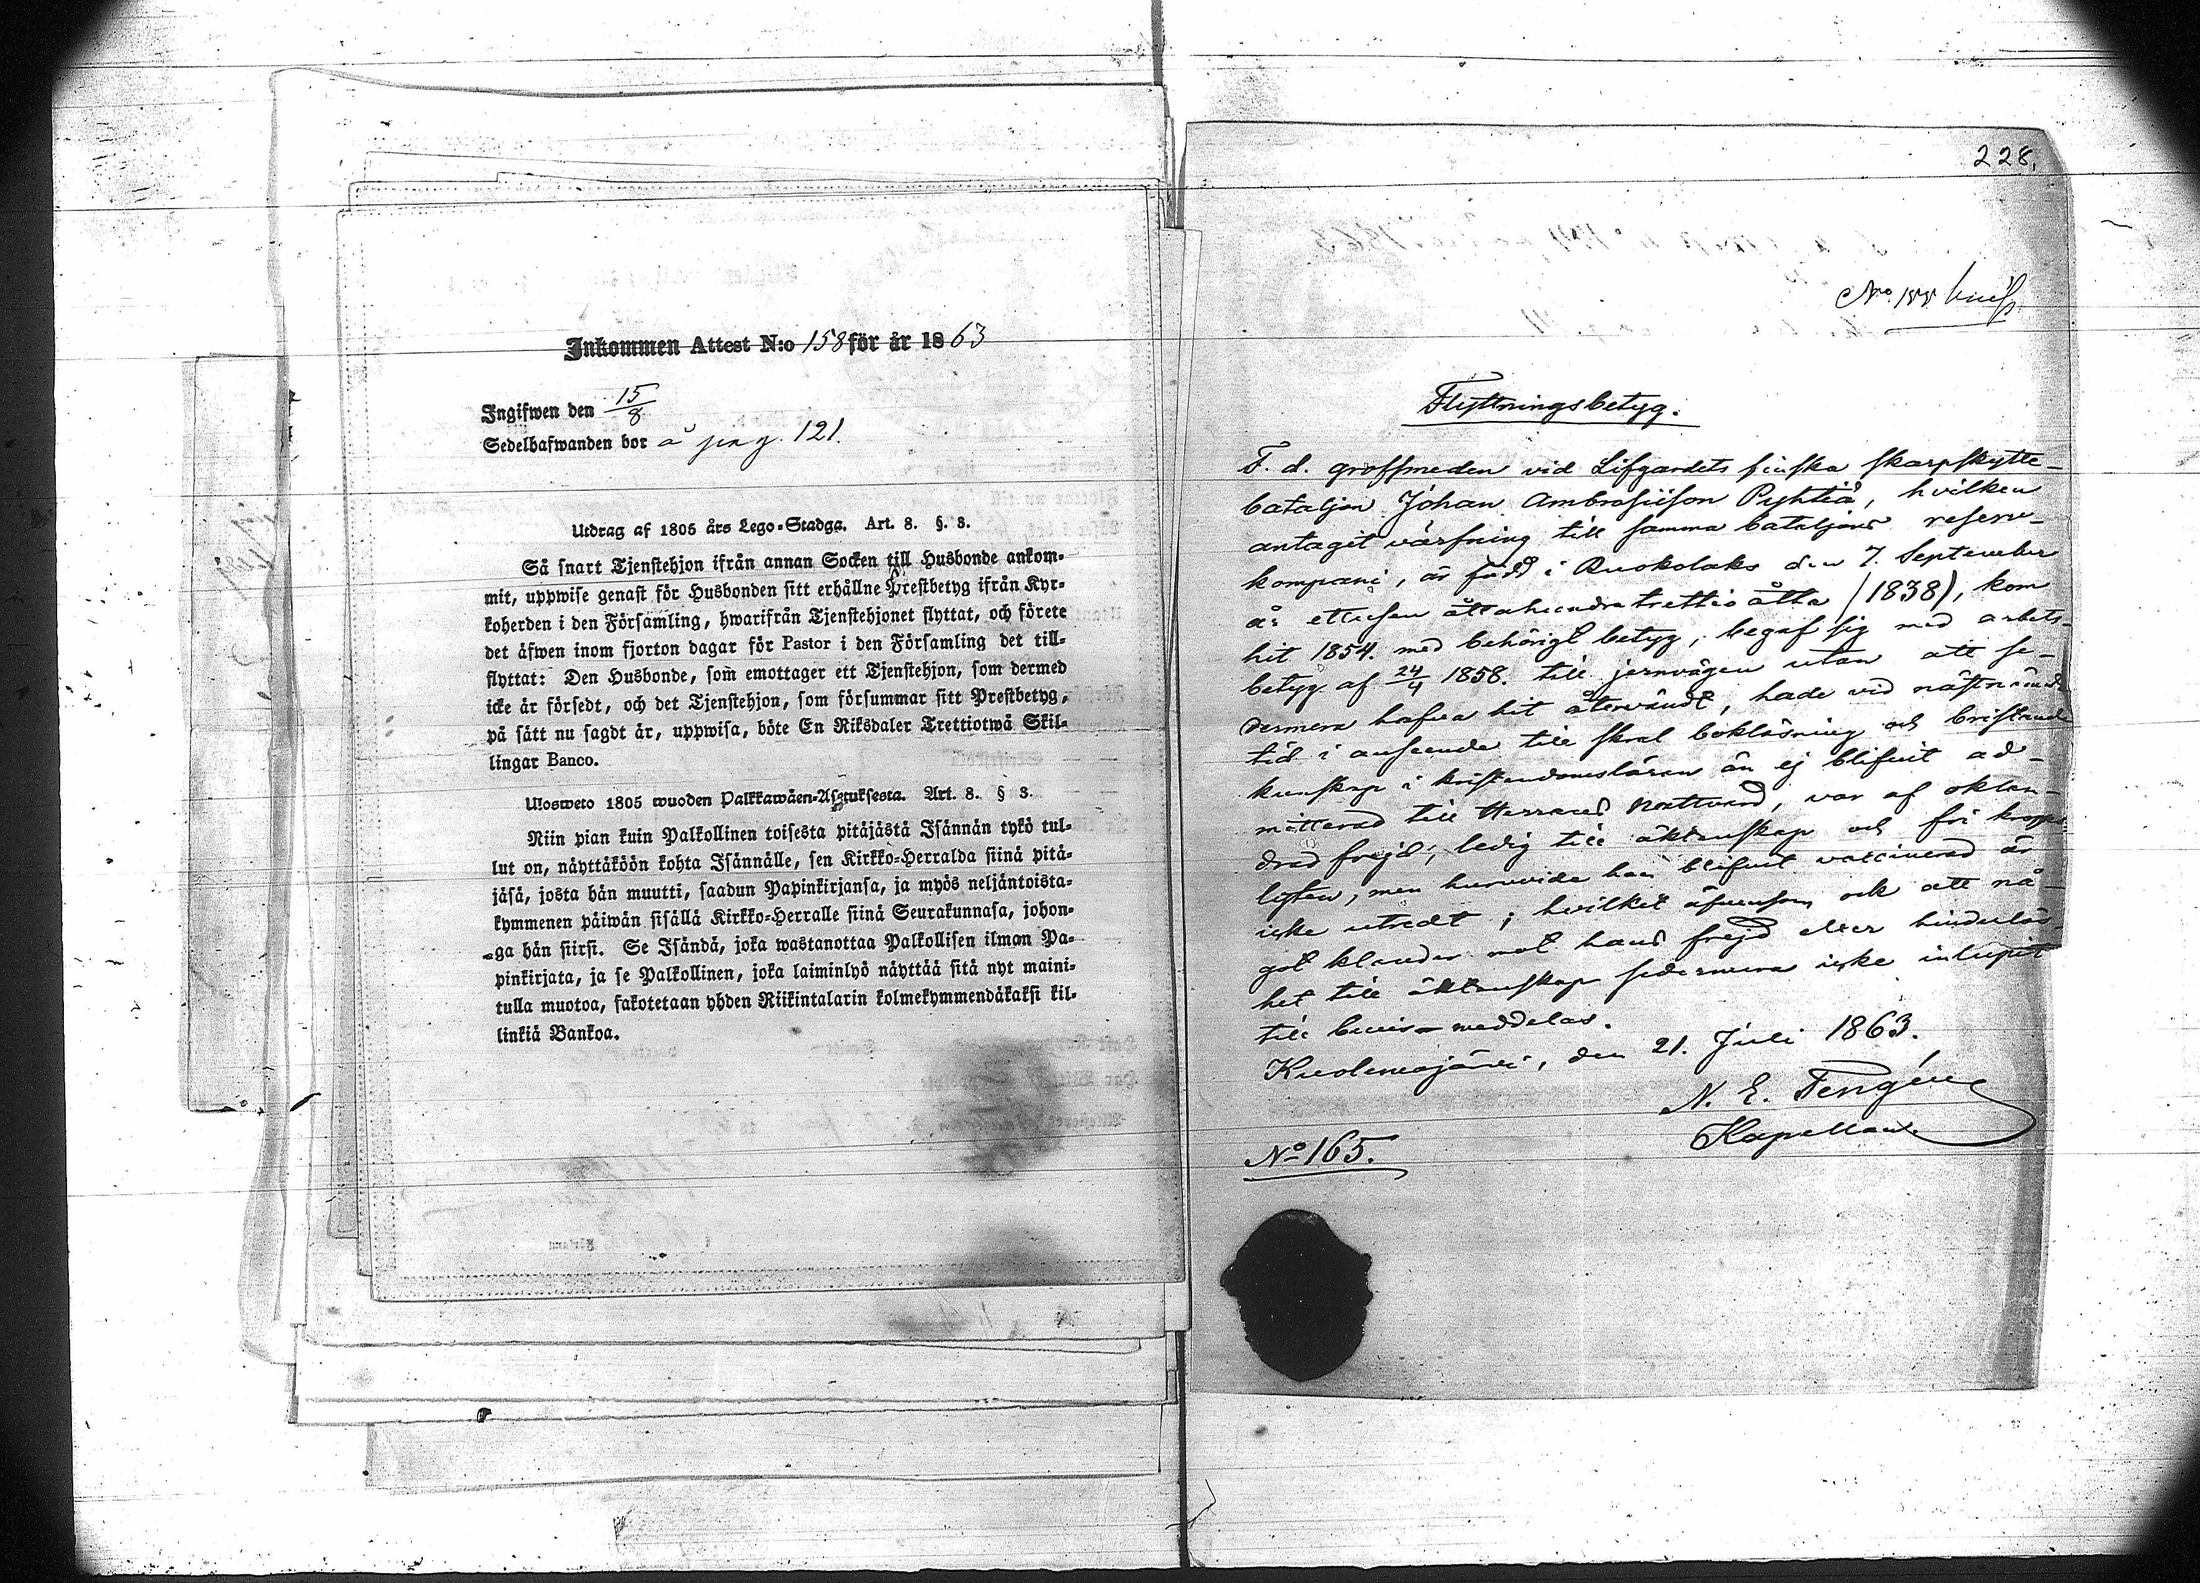 Inkommen Attest N:o 158 för år 1863
Ingifwen den 15/8
Sedelhafwanden bor å pag. 121.
Utdrag af 1805 års Lego-Stadga. Art. 8. §. 3.
Så snart Tjenstehjon ifrån annan Socken till Husbonde ankom-
mit, uppwise genast för Husbonden sitt erhållne Prestbetyg ifrån Kyr-
koherden i den Församling, hwarifrån Tjenstehjonet flyttat, och förete
det äfwen inom fjorton dagar för Pastor i den Församling det till-
flyttat: Den Husbonde, som emottager ett Tjenstehjon, som dermed
icke är försedt, och det Tjenstehjon, som försummar sitt Prestbetyg,
på sätt nu sagdt är, uppwisa, böte En Riksdaler Trettiotwå Skil-
lingar Banco.
Ulosweto 1805 wuoden Palkkawäen-Asetuksesta. Art. 8. § 3.
Niin pian kuin Palkollinen toisesta pitäjästä Isännän tykö tul-
lut on, näyttäköön kohta Isännälle, sen Kirkko-Herralda siinä pitä-
jäsä, josta hän muutti, saadun Papinkirjansa, ja myös neljäntoista-
kymmenen päiwän sisällä Kirkko-Herralle siinä Seurakunnasa, johon-
ga hän siirsi. Se Isändä, joka wastanottaa Palkollisen ilman Pa-
pinkirjata, ja se Palkollinen, joka laiminlyö näyttää sitä nyt maini-
tulla muotoa, sakotetaan yhden Riikintalarin kolmekymmendäkaksi kil-
linkiä Bankoa.
228.
Flyttningsbetyg.
F. d. grofsmeden vid Lifgardets finska skarpskytte-
bataljon Johan Ambrosiison Pyhtiä, hvilken
antagit värfning till samma bataljons reserv-
kompani, är född i Ruokolaks den 7. September
år ettusen åttahundratrettioåtta (1838), kom
hit 1854. med behörigt betyg, begaf sig med arbets-
betyg af 24/4 1858. till jernvägen utan att se-
dermera hafva hit återvändt, hade vid nästnämnde
tid i anseende till skral bokläsning och bristande
kunskap i kristendomsläran än ej blifvit ad-
mitterad till Herrans Nattvard, var af oklan-
drad frejd, ledig till äktenskap och fri
lyten, men huruvida han blifvit vaccinerad är
icke utredt; hvilket äfvensom ock att nå-
got klander mot hans frejd eller hinderlös-
het till äktenskap sedermera icke inlupit
till bevis meddelas.
Kuolemajärvi, den 21. Juli 1863.
N. E. Tengén
Kapellan.
No 165.